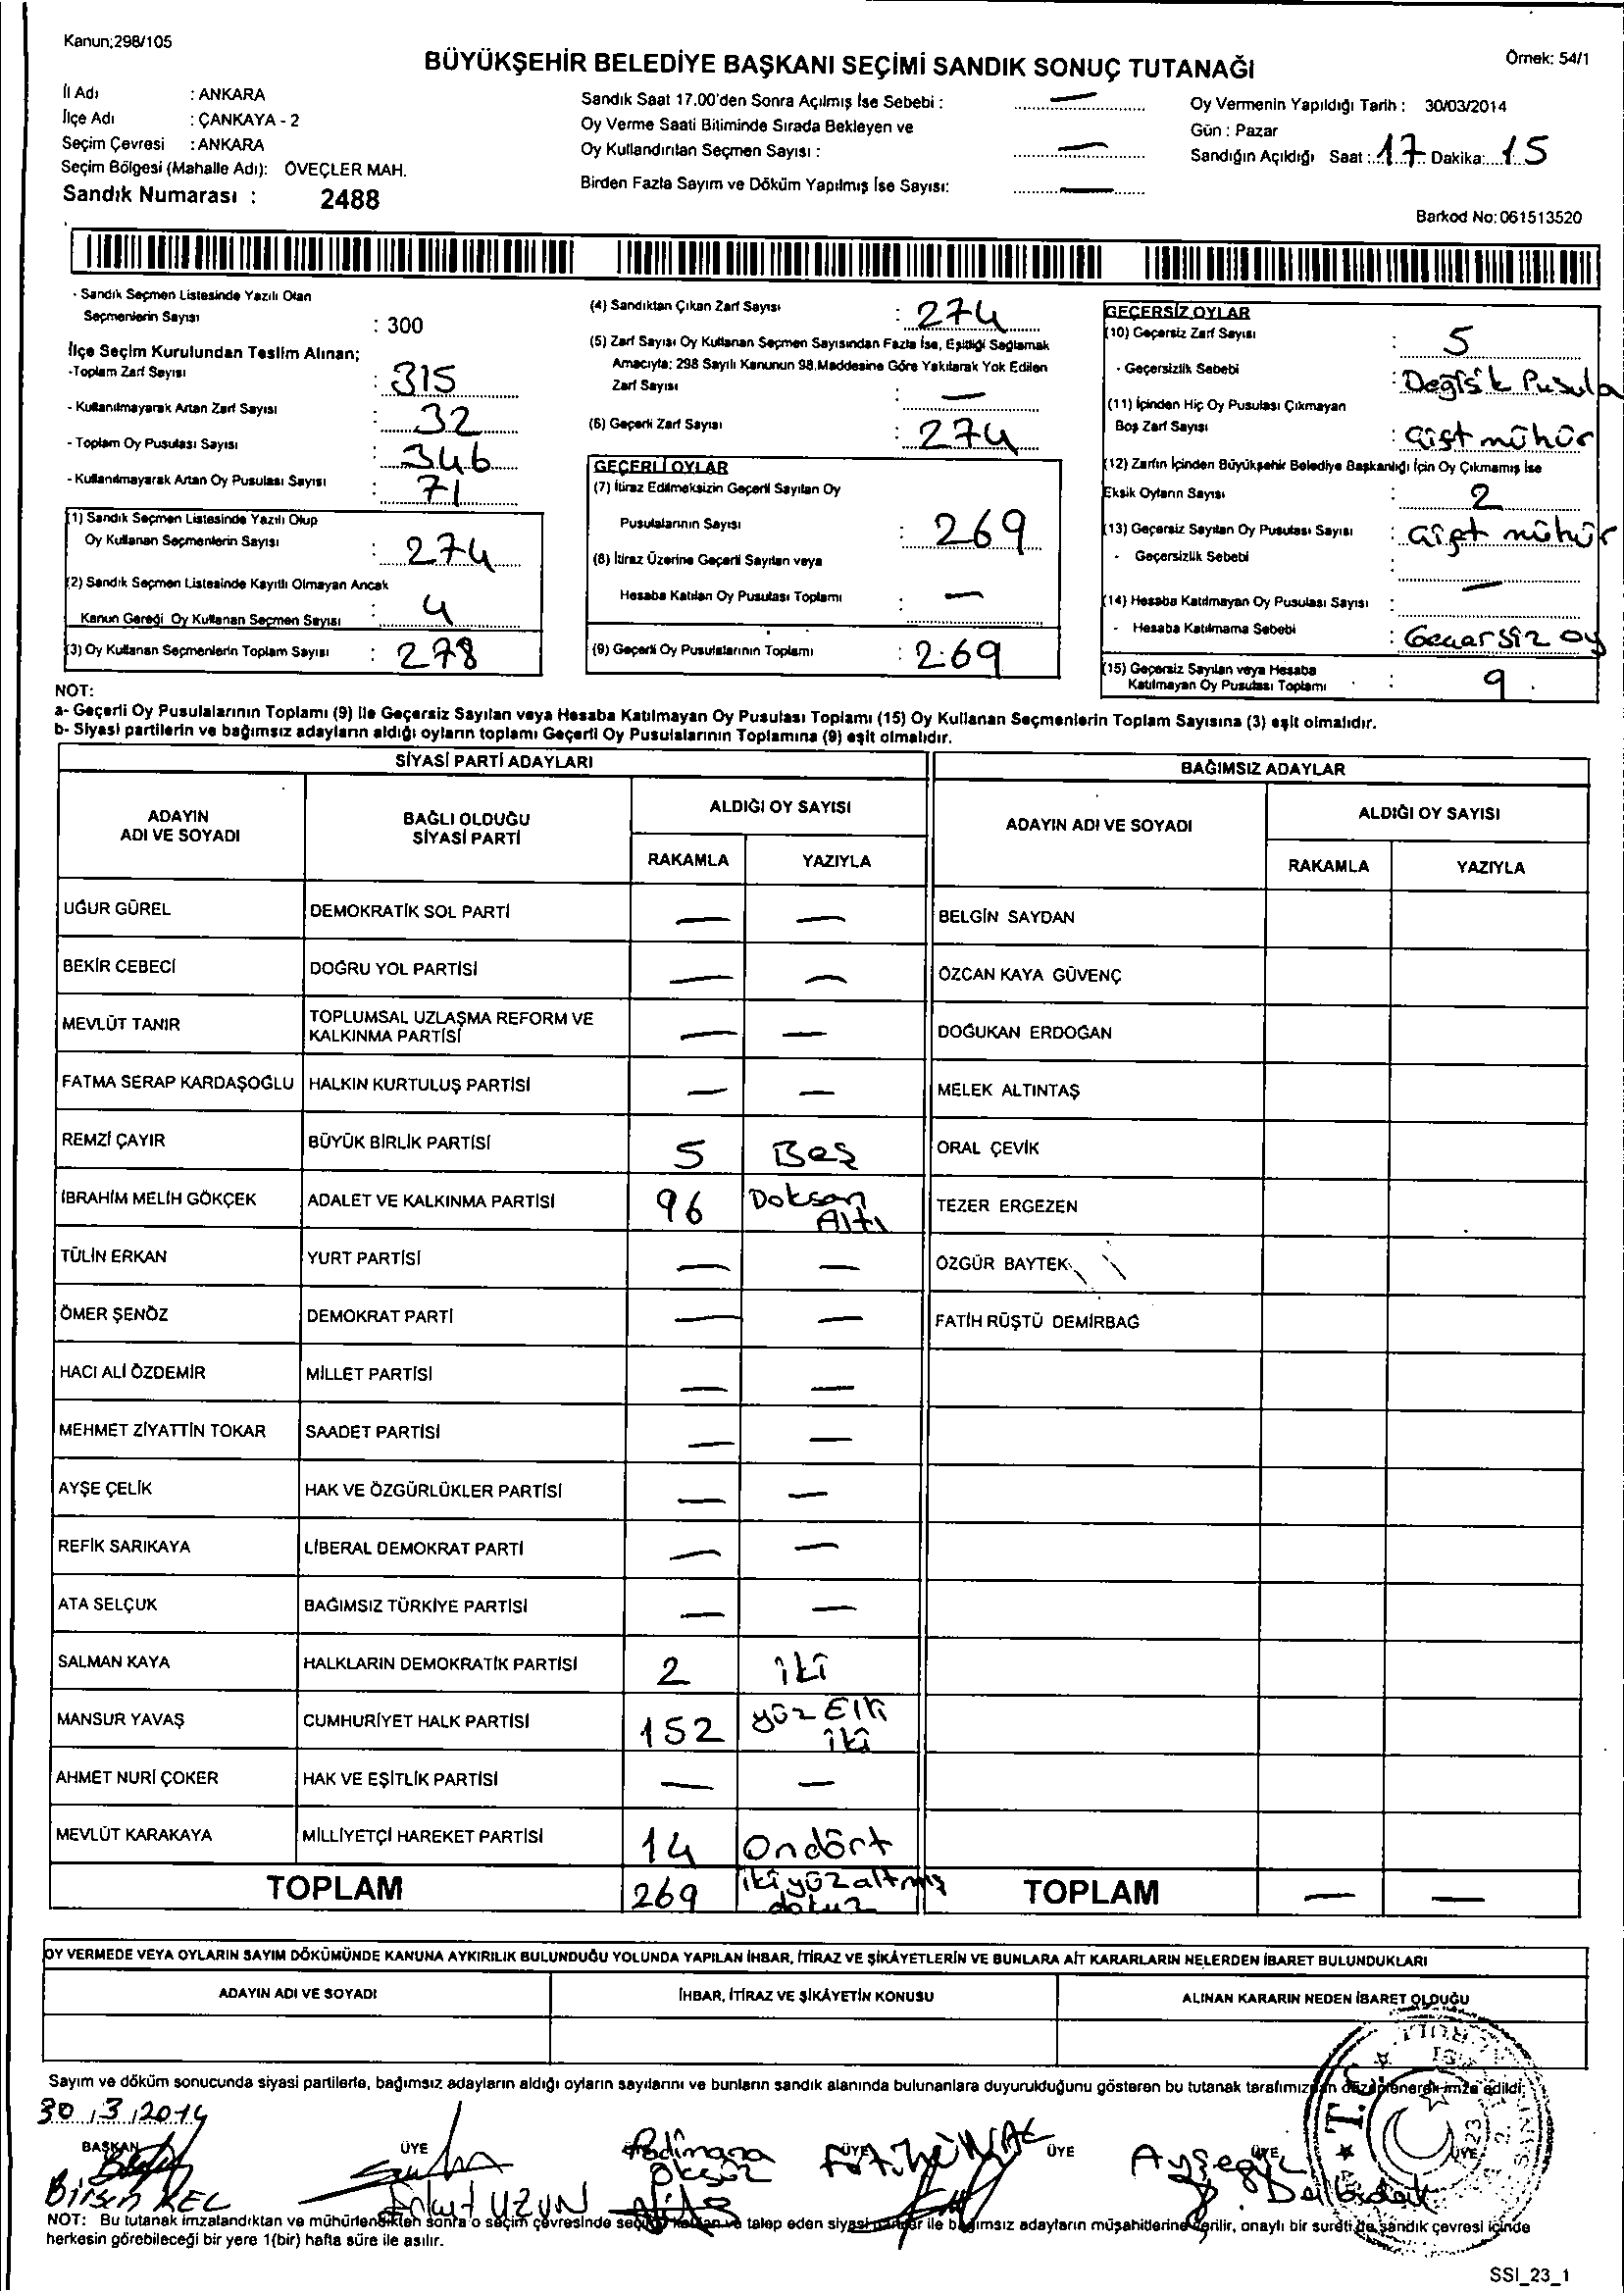 Kanun;298/105
Örnek: 54/1
BÜYÜKŞEHİR BELEDİYE BAŞKANI SEÇİMİ SANDIK SONUÇ TUTANAĞI
İl Adı : ANKARA
İlçe Adı : ÇANKAYA - 2
Seçim Çevresi : ANKARA
Seçim Bölgesi (Mahalle Adı): ÖVEÇLER MAH.
Sandık Numarası : 2488
Sandık Saat 17.00'den Sonra Açılmış İse Sebebi : —
Oy Verme Saati Bitiminde Sırada Bekleyen ve
Oy Kullandırılan Seçmen Sayısı : —
Birden Fazla Sayım ve Döküm Yapılmış İse Sayısı: —
Oy Vermenin Yapıldığı Tarih : 30/03/2014
Gün : Pazar
Sandığın Açıldığı Saat : 17 Dakika: 15
Barkod No: 061513520
- Sandık Seçmen Listesinde Yazılı Olan
Seçmenlerin Sayısı : 300
İlçe Seçim Kurulundan Teslim Alınan;
-Toplam Zarf Sayısı : 315
- Kullanılmayarak Artan Zarf Sayısı : 32
- Toplam Oy Pusulası Sayısı : 346
- Kullanılmayarak Artan Oy Pusulası Sayısı : 71
(1) Sandık Seçmen Listesinde Yazılı Olup
Oy Kullanan Seçmenlerin Sayısı : 274
(2) Sandık Seçmen Listesinde Kayıtlı Olmayan Ancak
Kanun Gereği Oy Kullanan Seçmen Sayısı : 4
(3) Oy Kullanan Seçmenlerin Toplam Sayısı : 278
(4) Sandıktan Çıkan Zarf Sayısı : 274
(5) Zarf Sayısı Oy Kullanan Seçmen Sayısından Fazla İse, Eşitliği Sağlamak
Amacıyla: 298 Sayılı Kanunun 98.Maddesine Göre Yakılarak Yok Edilen
Zarf Sayısı : —
(6) Geçerli Zarf Sayısı : 274
GEÇERLİ OYLAR
(7) İtiraz Edilmeksizin Geçerli Sayılan Oy
Pusulalarının Sayısı : 269
(8) İtiraz Üzerine Geçerli Sayılan veya
Hesaba Katılan Oy Pusulası Toplamı : —
(9) Geçerli Oy Pusulalarının Toplamı : 269
GEÇERSİZ OYLAR
(10) Geçersiz Zarf Sayısı : 5
- Geçersizlik Sebebi : Değişik Pusula
(11) İçinden Hiç Oy Pusulası Çıkmayan
Boş Zarf Sayısı : çift mühür
(12) Zarfın İçinden Büyükşehir Belediye Başkanlığı İçin Oy Çıkmamış İse
Eksik Oyların Sayısı : 2
(13) Geçersiz Sayılan Oy Pusulası Sayısı : çift mühür
- Geçersizlik Sebebi : —
(14) Hesaba Katılmayan Oy Pusulası Sayısı :
- Hesaba Katılmama Sebebi : Geçersiz oy
(15) Geçersiz Sayılan veya Hesaba
Katılmayan Oy Pusulası Toplamı : 9
NOT:
a- Geçerli Oy Pusulalarının Toplamı (9) ile Geçersiz Sayılan veya Hesaba Katılmayan Oy Pusulası Toplamı (15) Oy Kullanan Seçmenlerin Toplam Sayısına (3) eşit olmalıdır.
b- Siyasi partilerin ve bağımsız adayların aldığı oyların toplamı Geçerli Oy Pusulalarının Toplamına (9) eşit olmalıdır.
SİYASİ PARTİ ADAYLARI
ADAYIN ADI VE SOYADI
BAĞLI OLDUĞU SİYASİ PARTİ
ALDIĞI OY SAYISI
RAKAMLA YAZIYLA
BAĞIMSIZ ADAYLAR
ADAYIN ADI VE SOYADI
ALDIĞI OY SAYISI
RAKAMLA YAZIYLA
UĞUR GÜREL DEMOKRATİK SOL PARTİ — — BELGİN SAYDAN
BEKİR CEBECİ DOĞRU YOL PARTİSİ — — ÖZCAN KAYA GÜVENÇ
MEVLÜT TANIR TOPLUMSAL UZLAŞMA REFORM VE KALKINMA PARTİSİ — — DOĞUKAN ERDOĞAN
FATMA SERAP KARDAŞOĞLU HALKIN KURTULUŞ PARTİSİ — — MELEK ALTINTAŞ
REMZİ ÇAYIR BÜYÜK BİRLİK PARTİSİ 5 Beş ORAL ÇEVİK
İBRAHİM MELİH GÖKÇEK ADALET VE KALKINMA PARTİSİ 96 Doksan Altı TEZER ERGEZEN
TÜLİN ERKAN YURT PARTİSİ — — ÖZGÜR BAYTEK
ÖMER ŞENÖZ DEMOKRAT PARTİ — — FATİH RÜŞTÜ DEMİRBAĞ
HACI ALİ ÖZDEMİR MİLLET PARTİSİ — —
MEHMET ZİYATTİN TOKAR SAADET PARTİSİ — —
AYŞE ÇELİK HAK VE ÖZGÜRLÜKLER PARTİSİ — —
REFİK SARIKAYA LİBERAL DEMOKRAT PARTİ — —
ATA SELÇUK BAĞIMSIZ TÜRKİYE PARTİSİ — —
SALMAN KAYA HALKLARIN DEMOKRATİK PARTİSİ 2 iki
MANSUR YAVAŞ CUMHURİYET HALK PARTİSİ 152 yüz Elli iki
AHMET NURİ ÇOKER HAK VE EŞİTLİK PARTİSİ — —
MEVLÜT KARAKAYA MİLLİYETÇİ HAREKET PARTİSİ 14 Ondört
TOPLAM 269 ikiyüzaltmış dokuz TOPLAM — —
OY VERMEDE VEYA OYLARIN SAYIM DÖKÜMÜNDE KANUNA AYKIRILIK BULUNDUĞU YOLUNDA YAPILAN İHBAR, İTİRAZ VE ŞİKÂYETLERİN VE BUNLARA AİT KARARLARIN NELERDEN İBARET BULUNDUKLARI
ADAYIN ADI VE SOYADI İHBAR, İTİRAZ VE ŞİKÂYETİN KONUSU ALINAN KARARIN NEDEN İBARET OLDUĞU
Sayım ve döküm sonucunda siyasi partilerle, bağımsız adayların aldığı oyların sayılarını ve bunların sandık alanında bulunanlara duyurulduğunu gösteren bu tutanak tarafımızdan düzenlenerek imza edildi.
30/3/2014
BAŞKAN ÜYE ÜYE ÜYE ÜYE ÜYE
Birsen KEL
UZUN
Öksüz
ÜNSAL
Ayşegül
T.C.
NOT: Bu tutanak imzalandıktan ve mühürlendikten sonra o seçim çevresinde talep eden siyasi partiler ile bağımsız adayların müşahitlerine verilir, onaylı bir sureti de sandık çevresi içinde
herkesin görebileceği bir yere 1(bir) hafta süre ile asılır.
SSI_23_1